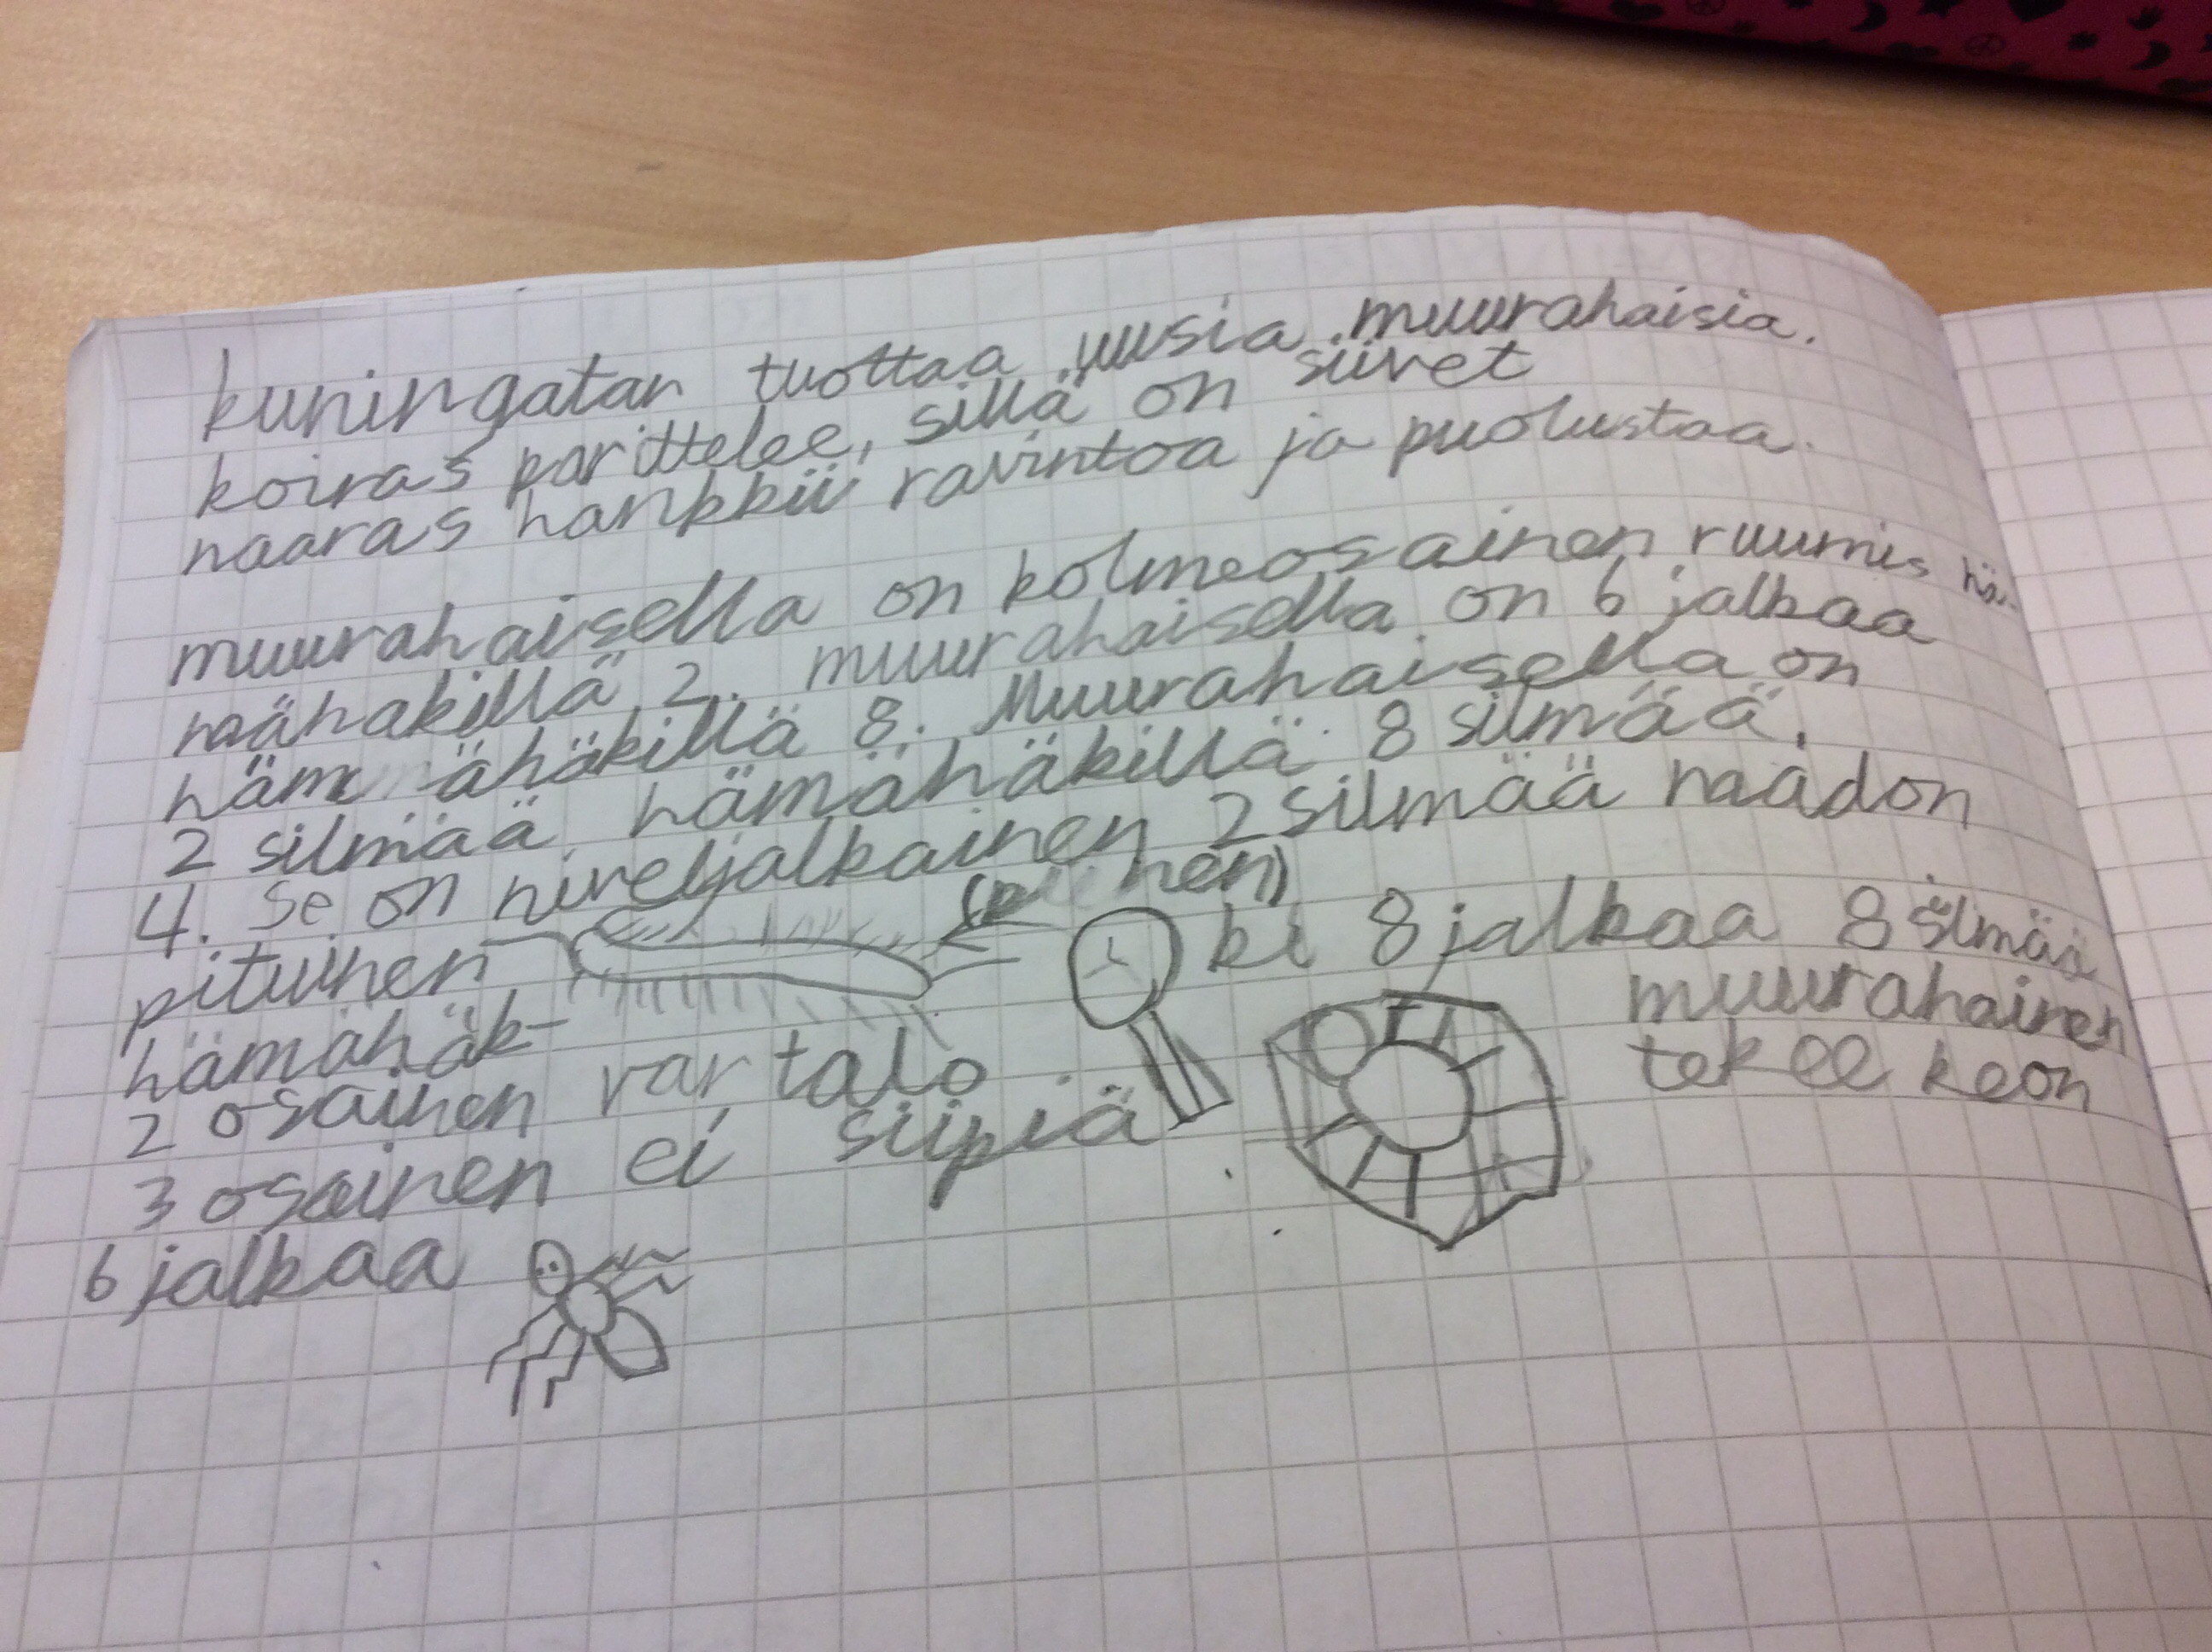 kuningatan tuottaa uusia muurahaisia.
koiras parittelee, sillä on siivet
naaras hankkii ravintoa ja puolustaa.
muurahaisella on kolmeosainen ruumis hä-
mähäkillä 2. muurahaisella on 6 jalkaa
hämähäkillä 8. Muurahaisella on
2 silmää. hämähäkillä 8 silmää.
4. se on niveljalkainen 2 silmää raadon
pituinen
hämähäk- ki 8 jalkaa 8 silmää
2 osainen vartalo
3 osainen ei siipiä
6 jalkaa
muurahainen
tekee keon